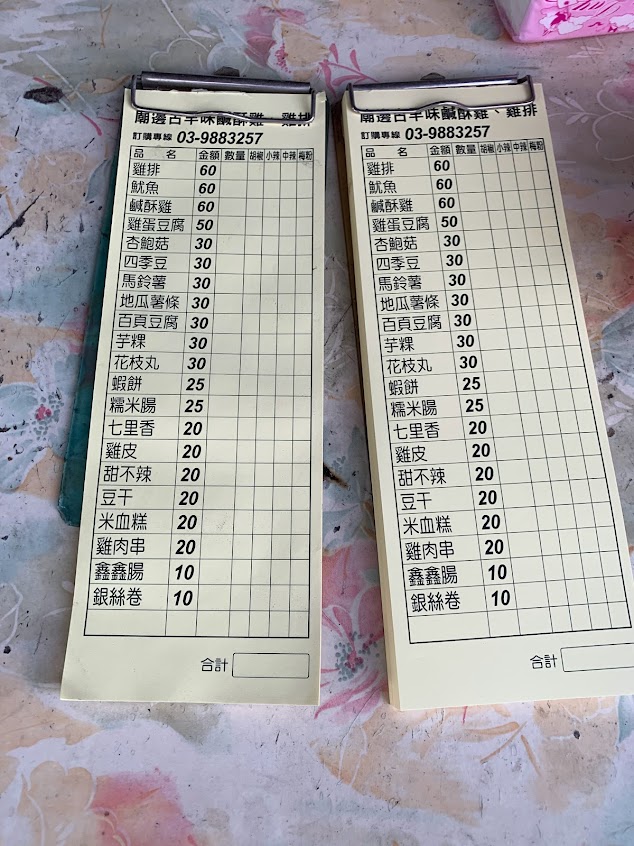 廟邊古早味鹹酥雞、雞排
訂購專線 03-9883257
品名 金額 數量 胡椒 小辣 中辣 梅粉
雞排 60
魷魚 60
鹹酥雞 60
雞蛋豆腐 50
杏鮑菇 30
四季豆 30
馬鈴薯 30
地瓜薯條 30
百頁豆腐 30
芋粿 30
花枝丸 30
蝦餅 25
糯米腸 25
七里香 20
雞皮 20
甜不辣 20
豆干 20
米血糕 20
雞肉串 20
鑫鑫腸 10
銀絲卷 10
合計
廟邊古早味鹹酥雞、雞排
訂購專線 03-9883257
品名 金額 數量 胡椒 小辣 中辣 梅粉
雞排 60
魷魚 60
鹹酥雞 60
雞蛋豆腐 50
杏鮑菇 30
四季豆 30
馬鈴薯 30
地瓜薯條 30
百頁豆腐 30
芋粿 30
花枝丸 30
蝦餅 25
糯米腸 25
七里香 20
雞皮 20
甜不辣 20
豆干 20
米血糕 20
雞肉串 20
鑫鑫腸 10
銀絲卷 10
合計